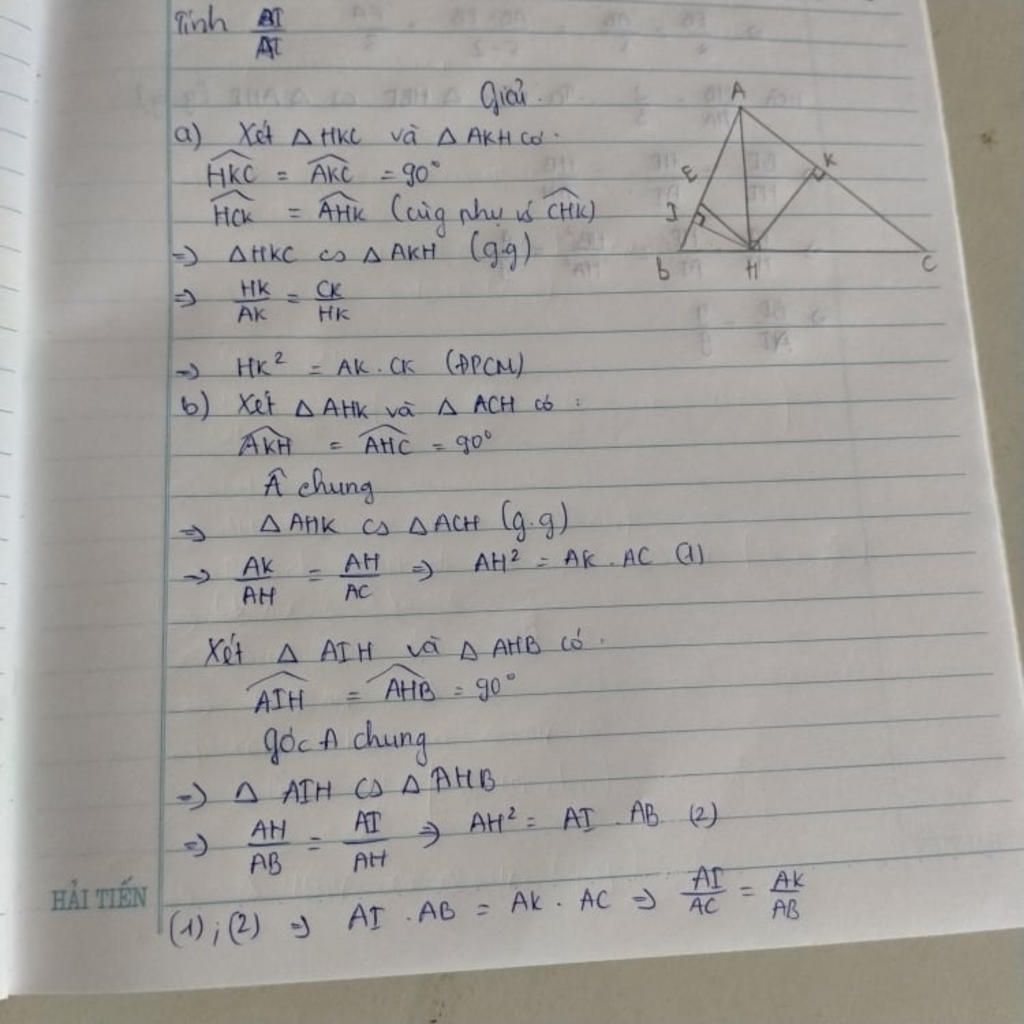 Tính BI/AI
Giải.
a) Xét △ HKC và △ AKH có.
HKC = AKC = 90°
HCK = AHK (cùg phụ vs CHK)
=> △HKC ᔕ △AKH (g.g)
=> HK/AK = CK/HK
=> HK² = AK . CK (ĐPCM)
b) Xét △ AHK và △ ACH có :
AKH = AHC = 90°
Â chung
=> △ AHK ᔕ △ACH (g.g)
=> AK/AH = AH/AC => AH² = AK . AC (1)
Xét △ AIH và △ AHB có .
AIH = AHB = 90°
góc A chung
=> △ AIH ᔕ △AHB
=> AH/AB = AI/AH => AH² = AI . AB (2)
(1) ; (2) => AI . AB = AK . AC => AI/AC = AK/AB
HẢI TIẾN
A
E
K
I
B
H
C